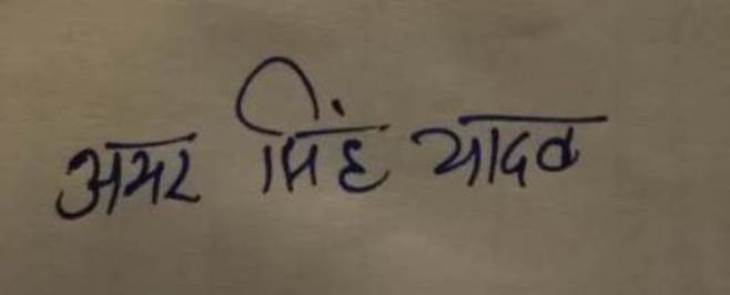 अमर सिंह यादव